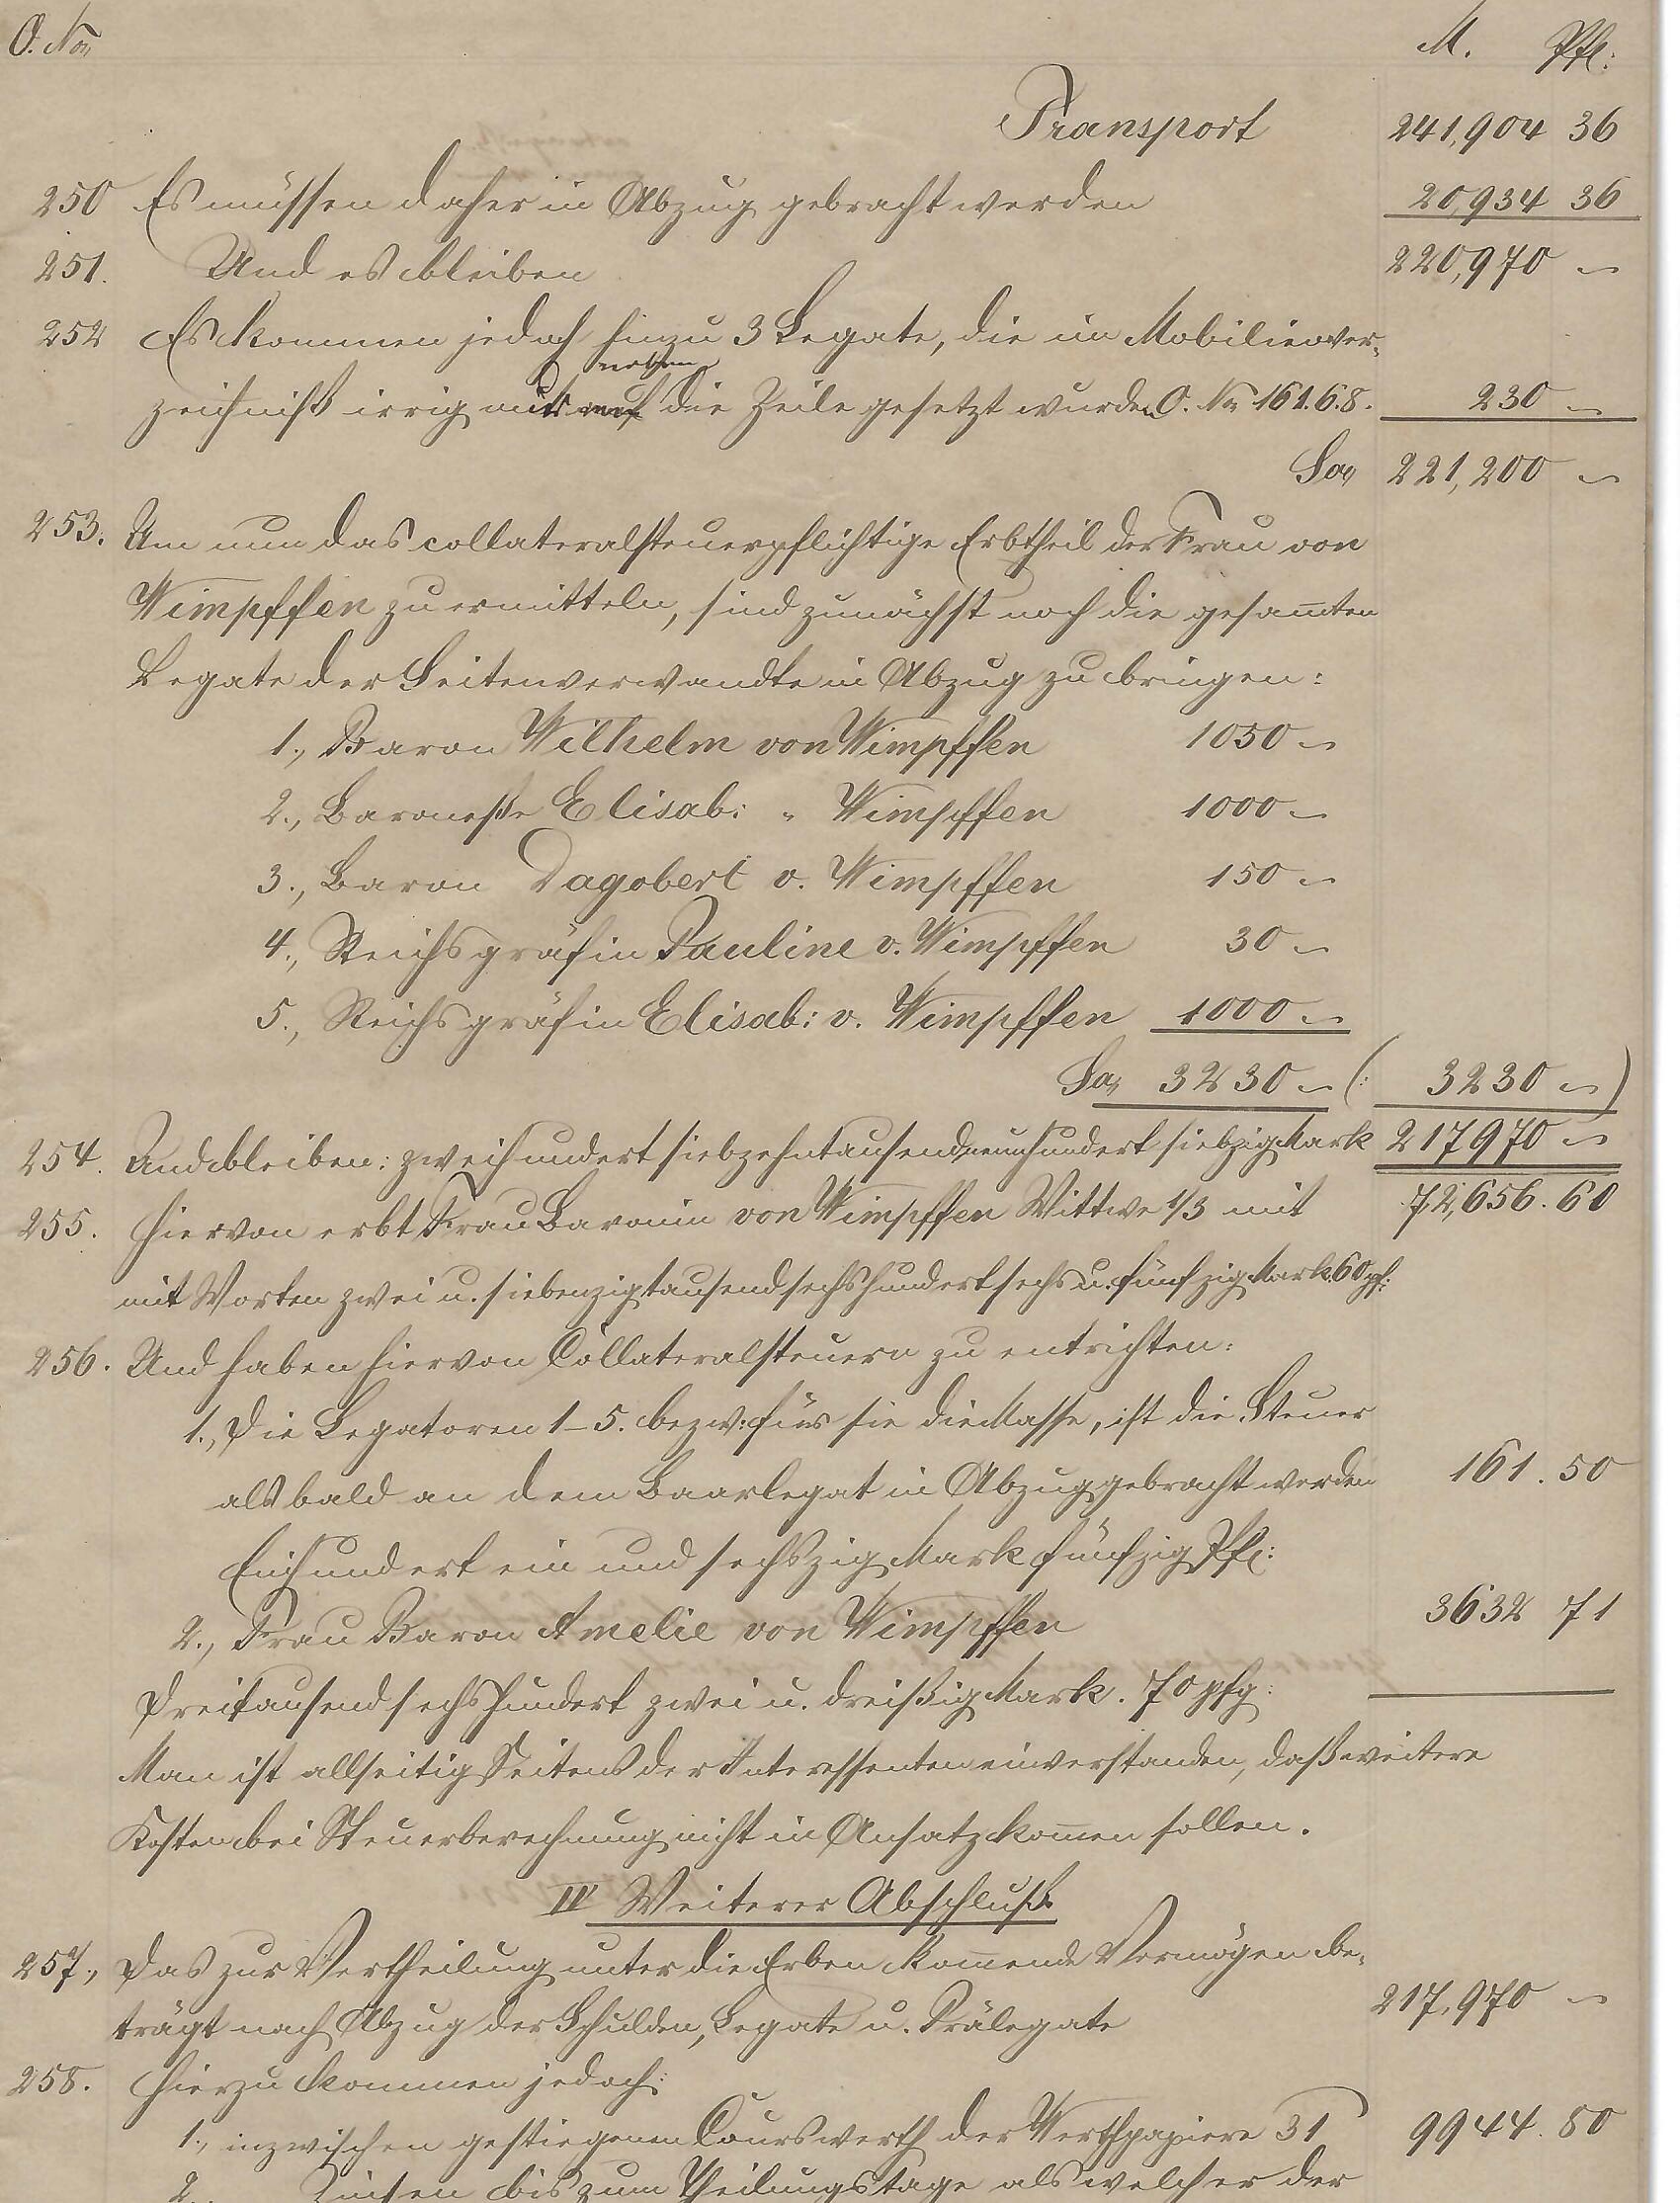 O. No M. Pf:
Transport 241,904 36
250 Es müssen daher in Abzug gebracht werden 20,934 36
251. Und es bleiben 220,970 –
252 Es kommen jedoch hinzu 3 Legate, die im Mobilienver-
zeichniß irrig mit auf die Zeile gesetzt wurden O. No 161.6.8. 230 –
Sa 221,200 –
253. Um nun das collateralsteuerpflichtige Erbtheil der Frau von
Wimpffen zu ermitteln, sind zunächst noch die gesam̄ten
Legate der Seitenverwandte in Abzug zu bringen:
1., Baron Wilhelm von Wimpffen 1050 –
2., Baroneße Elisab: " Wimpffen 1000 –
3., Baron Dagobert v. Wimpffen 150 –
4., Reichsgräfin Pauline v. Wimpffen 30 –
5., Reichsgräfin Elisab: v. Wimpffen 1000 –
Sa, 3230 – (: 3230 – )
254. Und bleiben: zweihundert siebzehntausendneunhundert siebzig Mark 217970 –
255. Hiervon erbt Frau Baronin von Wimpffen Wittwe 1/3 mit 72,656. 60
mit Worten zwei u. siebenzigtausendsechshundertsechs u. fünfzig Mark 60 pf:
256. Und haben hiervon Collateralsteuern zu entrichten:
1., Die Legatoren 1–5. bezw: für sie die Masse, ist die Steuer
alsbald an dem Baarlegat in Abzug gebracht worden 161. 50
Einhundert ein und sechszig Mark fünfzig Pf:
2., Frau Baron Amelie von Wimpffen 3632 71
Dreitausend sechshundert zwei u. dreißig Mark. 70 pfg:
Man ist allseitig Seitens der Interessenten einverstanden, daß weitere
Kosten bei Steuerberechnung nicht in Ansatz kom̄en sollen.
IV Weiterer Abschluß.
257., Das zur Vertheilung unter die Erben kom̄ende Vermögen be-
trägt nach Abzug der Schulden, Legate u. Prälegate 217,970 –
258. Hierzu kommen jedoch:
1., inzwischen gestiegenen Courswerth der Werthpapiere 31 9944. 80
2., Zinsen bis zum Theilungstage als welcher der